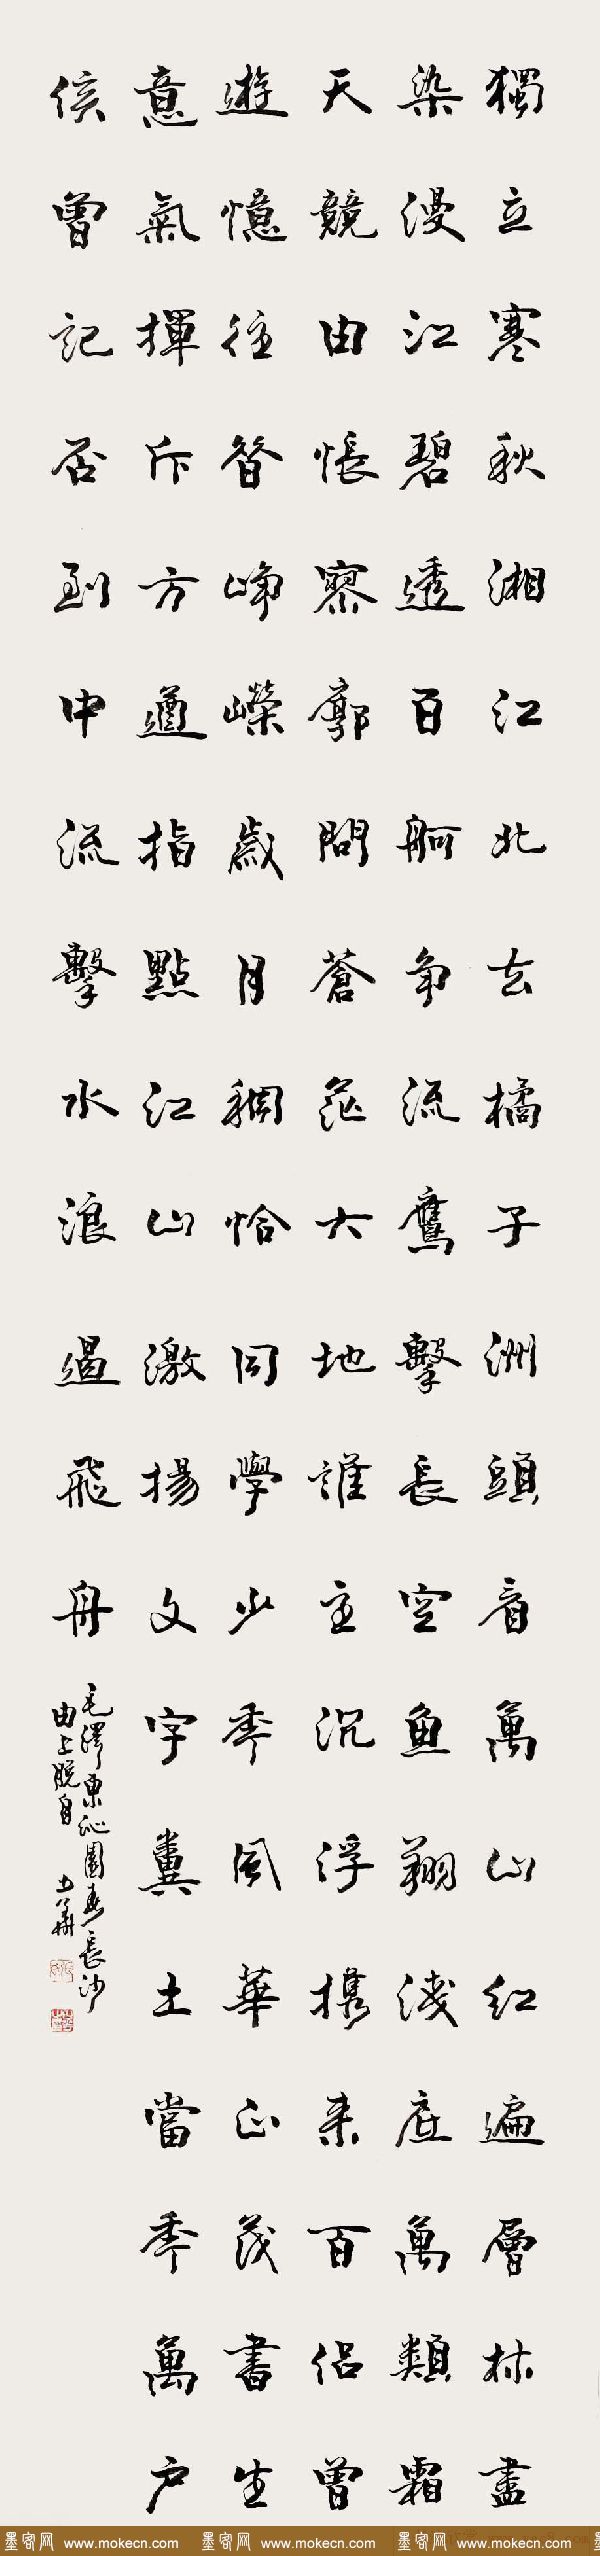 獨立寒秋湘江北去橘子洲頭看萬山紅遍層林盡
染漫江碧透百舸争流鷹擊長空魚翔淺底萬類霜
天競由悵寥廓問蒼茫大地誰主沉浮携来百侣曾
遊憶往昔峥嶸歲月稠恰同學少年風華正茂書生
意氣揮斥方遒指點江山激揚文字糞土當年萬户
侯曾記否到中流擊水浪遏飛舟
毛澤東沁園春長沙
由上脱自
墨客网 www.mokecn.com 墨客网 www.mokecn.com 墨客网 www.mokecn.com